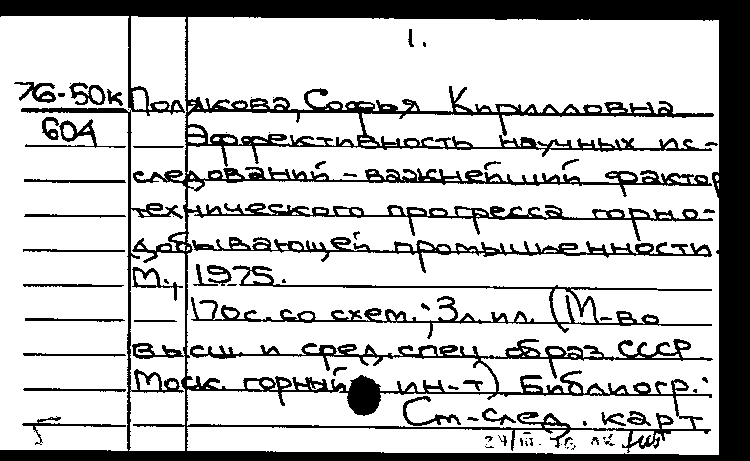 1.
76-50к Полякова, Софья Кирилловна
604 Эффективность научных ис-
следований - важнейший фактор
технического прогресса горно-
добывающей промышленности.
М., 1975.
170с. со схем.; 3л. ил. (М-во
высш. и сред. спец образ. СССР
Моск. горный ин-т). Библиогр.:
См-след. карт